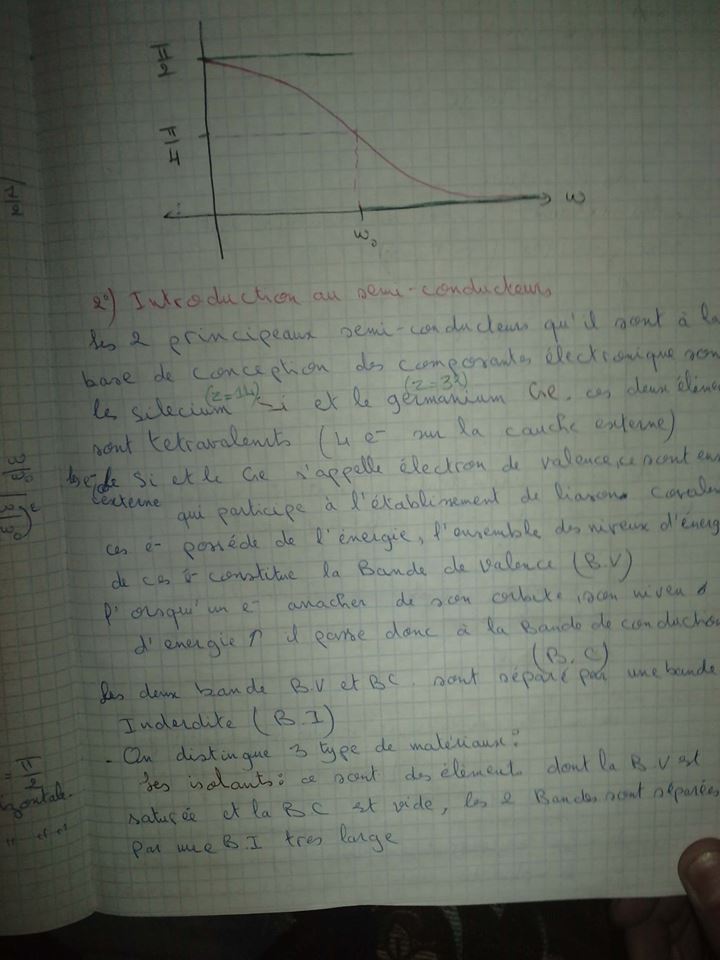 π/2
π/4
ω
ω₀
2°) Introduction au semi-conducteurs
Les 2 principeaux semi-conducteurs qu'il sont à la
base de conception des composantes électronique son
(Z=14) (Z=32)
les silecium Si et le germanium Ge. ces deux éléme
sont tetravalents (4 e- sur la cauche externe)
les e- de Si et le Ge s'appelle électron de valence, ce sont ens
externe qui participe à l'établissement de liasons Covalen
ces e- posséde de l'énergie, l'ensemble des niveux d'énerg
de ces e- constitue la Bande de Valence (B.V)
l'orsqu'un e- anacher de son orbite, son niveu
d'energie ↑ il passe donc à la Bande de conduction
(B.C)
Les deux bande B.V et BC. sont séparé par une bande
Inderdite (B.I)
- On distingue 3 type de matériaux:
Les isolants: ce sont des éléments dont la B.V est
saturée et la BC est vide, les 2 Bandes sont séparées
par une B.I tres large
1/2
= π/2
izontale.